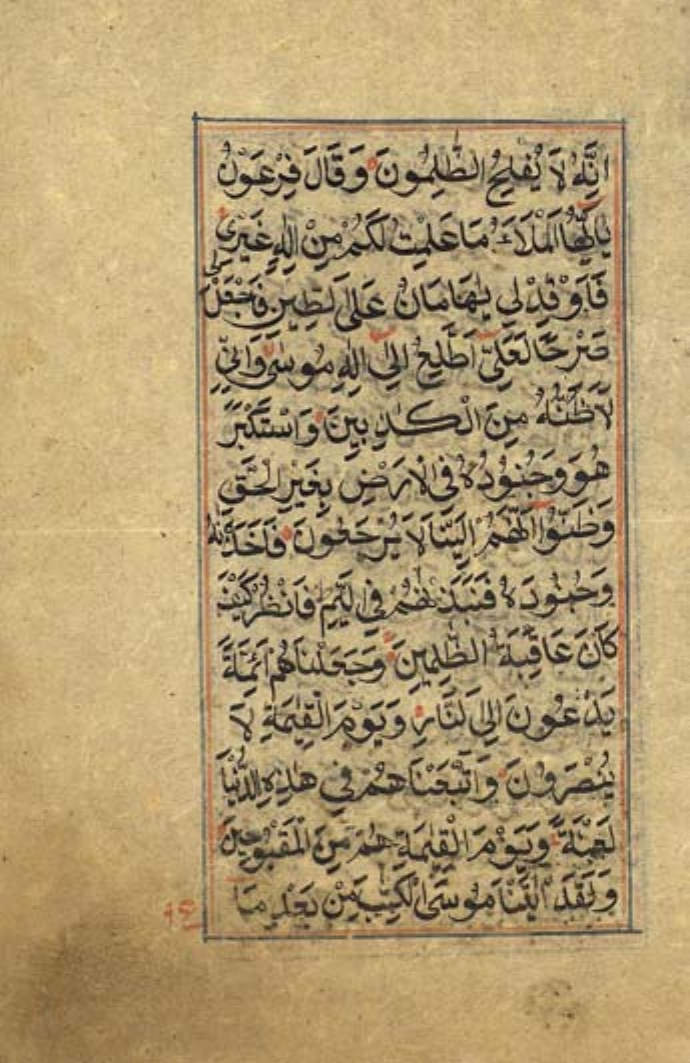 اِنَّهُ لَا يُفْلِحُ الظّٰلِمُونَ وَقَالَ فِرْعَوْنُ
يٰاَيُّهَا الْمَلَاَءُ مَا عَلِمْتُ لَكُمْ مِنْ اِلٰهٍ غَيْرِي
فَاَوْقِدْ لِي يٰهَامَانُ عَلَى الطِّينِ فَاجْعَلْ لِي
صَرْحًا لَعَلِّي اَطَّلِعُ اِلٰى اِلٰهِ مُوسٰى وَاِنِّي
لَاَظُنُّهُ مِنَ الْكٰذِبِينَ وَاسْتَكْبَرَ
هُوَ وَجُنُودُهُ فِي الْاَرْضِ بِغَيْرِ الْحَقِّ
وَظَنُّوا اَنَّهُمْ اِلَيْنَا لَا يُرْجَعُونَ فَاَخَذْنٰهُ
وَجُنُودَهُ فَنَبَذْنٰهُمْ فِي الْيَمِّ فَانْظُرْ كَيْفَ
كَانَ عَاقِبَةُ الظّٰلِمِينَ وَجَعَلْنَاهُمْ اَئِمَّةً
يَدْعُونَ اِلَى النَّارِ وَيَوْمَ الْقِيٰمَةِ لَا
يُنْصَرُونَ وَاَتْبَعْنَاهُمْ فِي هٰذِهِ الدُّنْيَا
لَعْنَةً وَيَوْمَ الْقِيٰمَةِ هُمْ مِنَ الْمَقْبُوحِينَ
وَلَقَدْ اٰتَيْنَا مُوسَى الْكِتٰبَ مِنْ بَعْدِ مَا